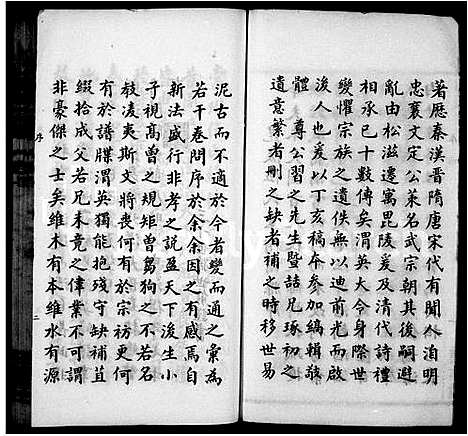 著歷秦漢晉隋唐宋代有聞人洎明
忠襄文定公萊名武宗朝其後嗣避
亂由松滋遷寓毘陵爰及清代詩禮
相承已十數傳矣渭英大令身際世
變懼宗族之遺佚無以迪前光而啟
後人也爰以丁亥稿本參加編輯敬
體尊公習之先生暨喆兄琢初之
遺意繁者刪之缺者補之時移世易
泥古而不適於今者變而通之彙為
若干卷問序於余余因之有感焉自
新法盛行非孝之說盈天下後生小
子視高曾之規矩曾芻狗之不若名
教凌夷斯文將喪何有於宗祊更何
有於譜牒渭英獨能抱殘守缺補苴
綴拾成父若兄未竟之偉業不可謂
非豪傑之士矣維木有本維水有源
序
二